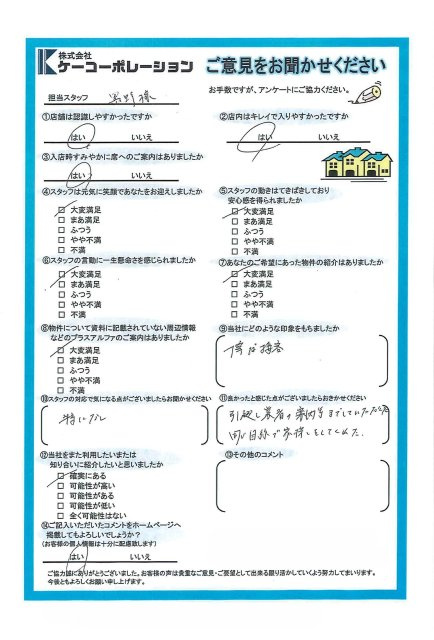 株式会社
ケーコーポレーション
ご意見をお聞かせください
お手数ですが、アンケートにご協力ください。
担当スタッフ 様
①店舗は認識しやすかったですか
はい いいえ
②店内はキレイで入りやすかったですか
はい いいえ
③入店時すみやかに席へのご案内はありましたか
はい いいえ
④スタッフは元気に笑顔であなたをお迎えしましたか
□ 大変満足
□ まあ満足
□ ふつう
□ やや不満
□ 不満
⑤スタッフの動きはてきぱきしており
安心感を得られましたか
□ 大変満足
□ まあ満足
□ ふつう
□ やや不満
□ 不満
⑥スタッフの言動に一生懸命さを感じられましたか
□ 大変満足
□ まあ満足
□ ふつう
□ やや不満
□ 不満
⑦あなたのご希望にあった物件の紹介はありましたか
□ 大変満足
□ まあ満足
□ ふつう
□ やや不満
□ 不満
⑧物件について資料に記載されていない周辺情報
などのプラスアルファのご案内はありましたか
□ 大変満足
□ まあ満足
□ ふつう
□ やや不満
□ 不満
⑨当社にどのような印象をもちましたか
丁寧な接客
⑩スタッフの対応で気になる点がございましたらお聞かせください
特になし
⑪良かったと感じた点がございましたらおきかせください
引越し業者の案内等までしていただいた
同じ目線で家探しをしてくれた。
⑫当社をまた利用したいたまは
知り合いに紹介したいと思いましたか
□ 確実にある
□ 可能性が高い
□ 可能性がある
□ 可能性が低い
□ 全く可能性はない
⑬その他のコメント
⑭ご記入いただいたコメントをホームページへ
掲載してもよろしいでしょうか？
(お客様の個人情報は十分に配慮致します)
はい いいえ
ご協力誠にありがとうございました。お客様の声は貴重なご意見・ご要望として出来る限り活かしていくよう努力してまいります。
今後ともよろしくお願い申し上げます。